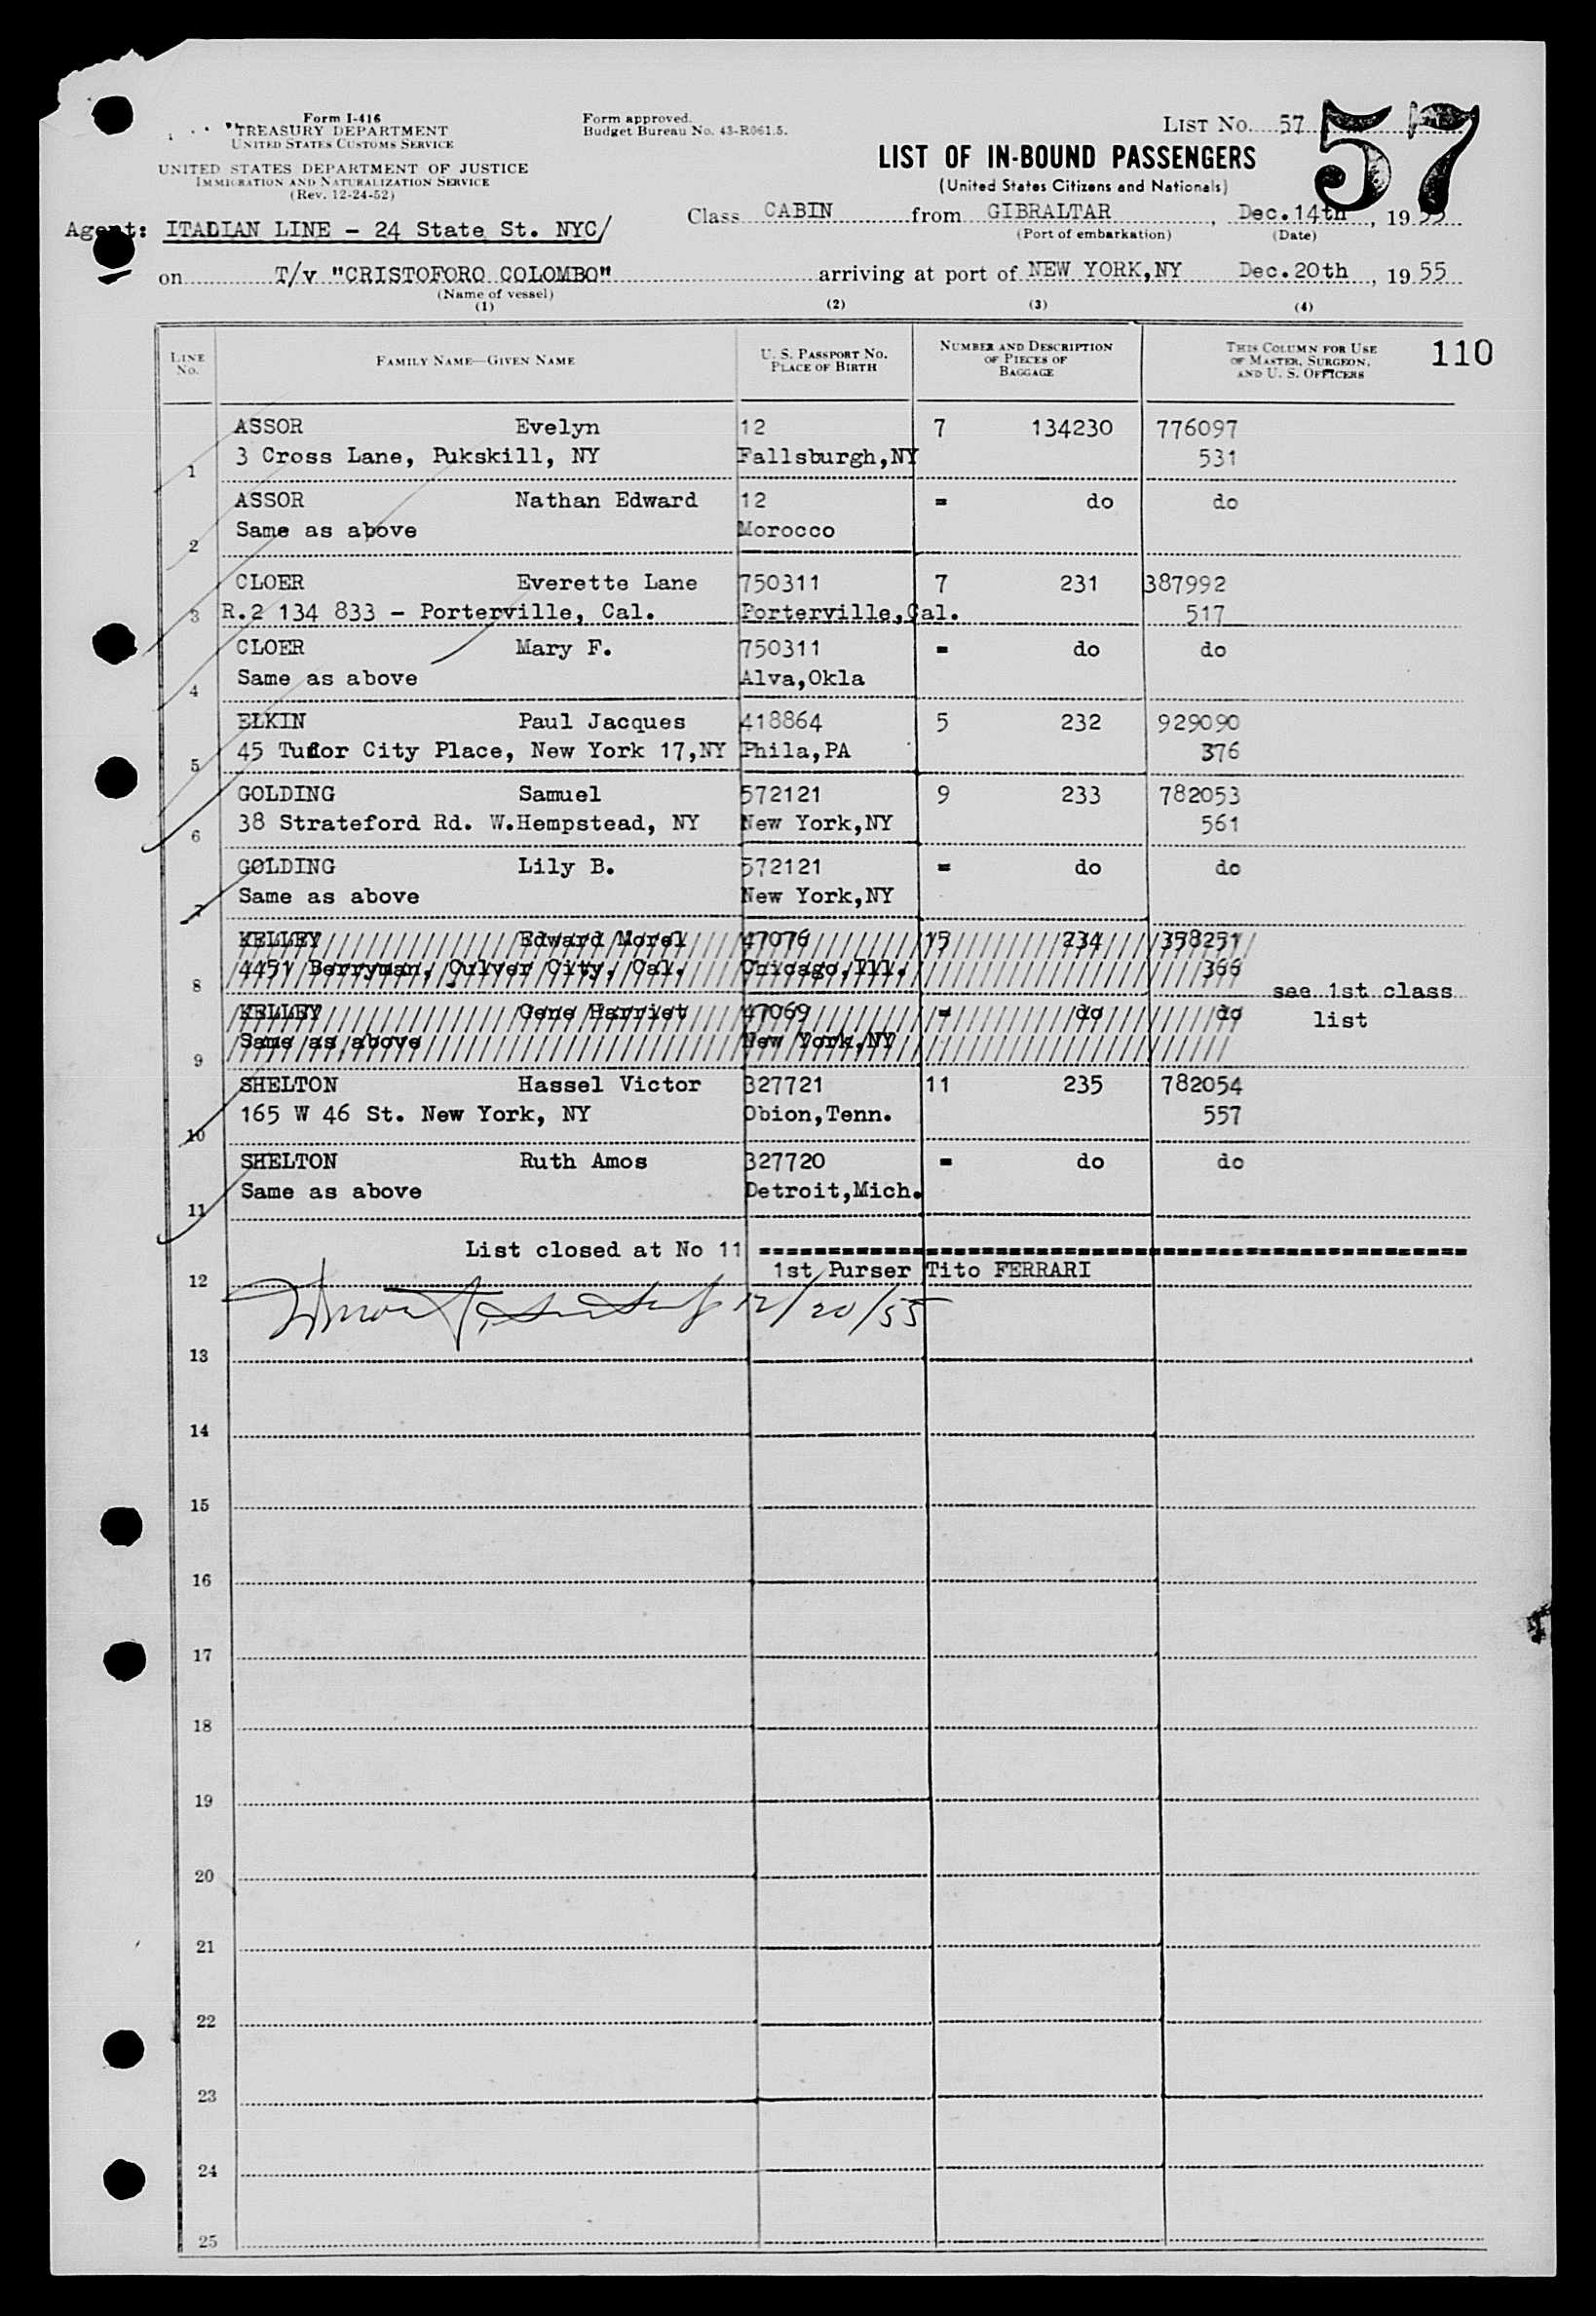 Form I-416
TREASURY DEPARTMENT
UNITED STATES CUSTOMS SERVICE
UNITED STATES DEPARTMENT OF JUSTICE
IMMIGRATION AND NATURALIZATION SERVICE
(Rev. 12-24-52)
Form approved.
Budget Bureau No. 43-R061.5.
LIST No. 57
57
LIST OF IN-BOUND PASSENGERS
(United States Citizens and Nationals)
Agent: ITALIAN LINE - 24 State St. NYC/
Class CABIN from GIBRALTAR, Dec.14th, 1955
(Port of embarkation) (Date)
on T/v "CRISTOFORO COLOMBO" arriving at port of NEW YORK,NY Dec.20th, 1955
(Name of vessel)
(1) (2) (3) (4)
LINE No. FAMILY NAME—GIVEN NAME U. S. PASSPORT NO. PLACE OF BIRTH NUMBER AND DESCRIPTION OF PIECES OF BAGGAGE THIS COLUMN FOR USE OF MASTER, SURGEON, AND U. S. OFFICERS 110
ASSOR Evelyn 12 7 134230 776097
1 3 Cross Lane, Pukskill, NY Fallsburgh,NY 531
ASSOR Nathan Edward 12 = do do
2 Same as above Morocco
CLOER Everette Lane 750311 7 231 387992
3 R.2 134 833 - Porterville, Cal. Porterville,Cal. 517
CLOER Mary F. 750311 = do do
4 Same as above Alva,Okla
ELKIN Paul Jacques 418864 5 232 929090
5 45 Tudor City Place, New York 17,NY Phila,PA 376
GOLDING Samuel 572121 9 233 782053
6 38 Strateford Rd. W.Hempstead, NY New York,NY 561
GOLDING Lily B. 572121 = do do
7 Same as above New York,NY
KELLEY Edward Morel 47076 15 234 358251
8 4451 Berryman, Culver City, Cal. Chicago,Ill. 366
see 1st class
KELLEY Gene Harriet 47069 = do do
list
9 Same as above New York,NY
SHELTON Hassel Victor 327721 11 235 782054
10 165 W 46 St. New York, NY Obion,Tenn. 557
SHELTON Ruth Amos 327720 = do do
11 Same as above Detroit,Mich.
List closed at No 11
12 1st Purser Tito FERRARI
12/20/55
13
14
15
16
17
18
19
20
21
22
23
24
25